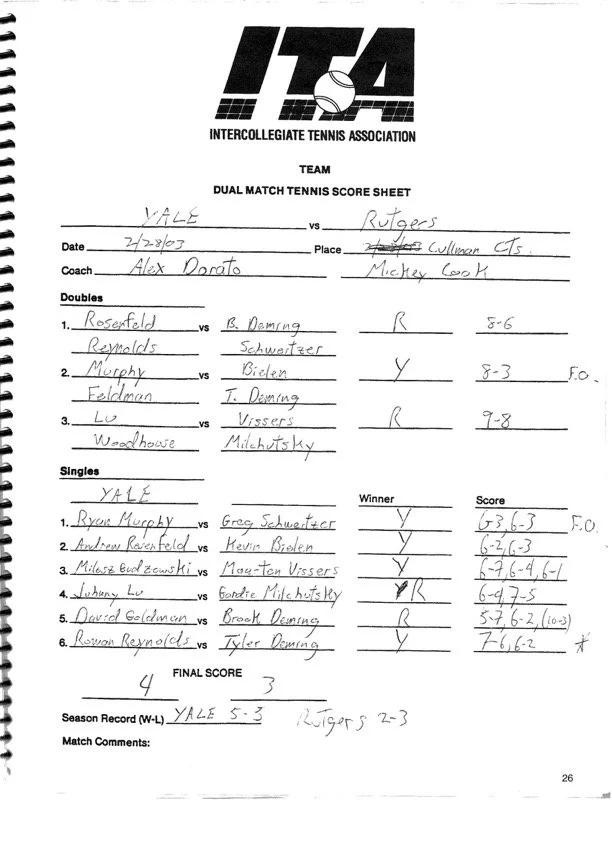 ITA
INTERCOLLEGIATE TENNIS ASSOCIATION
TEAM
DUAL MATCH TENNIS SCORE SHEET
YALE vs Rutgers
Date 2/28/03 Place Cullman CTs.
Coach Alex Dorato Mickey Cook
Doubles
1. Rosenfeld vs B. Deming R 8-6
Reynolds Schweitzer
2. Murphy vs Bielen Y 8-3 F.O.
Feldman T. Deming
3. Lu vs Vissers R 9-8
Woodhouse Milchutsky
Singles
YALE Winner Score
1. Ryan Murphy vs Greg Schweitzer Y 6-3, 6-3 F.O.
2. Andrew Rosenfeld vs Kevin Bielen Y 6-2, 6-3
3. Milosz Gudzowski vs Maarten Vissers Y 6-7, 6-4, 6-1
4. Johnny Lu vs Gordie Milchutsky R 6-4, 7-5
5. David Goldman vs Brook Deming R 5-7, 6-2, (10-3)
6. Rowan Reynolds vs Tyler Deming Y 7-6, 6-2 *
FINAL SCORE
4 3
Season Record (W-L) YALE 5-3 Rutgers 2-3
Match Comments:
26